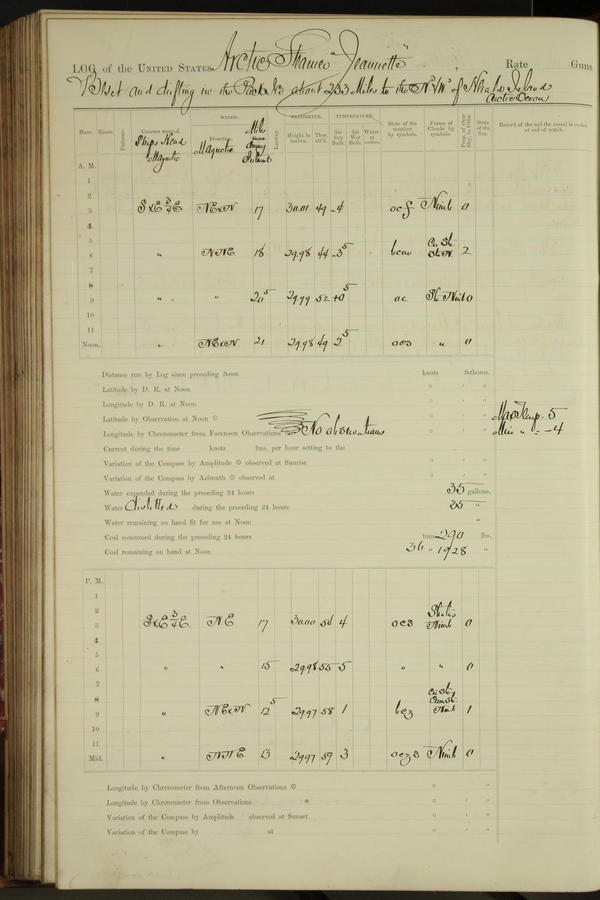 LOG of the UNITED STATES Arctic Steamer "Jeannette" Rate Guns
Beset and drifting in the Pack Ice about 233 Miles to the N.W. of Herald Island
Arctic Ocean
WINDS. BAROMETER. TEMPERATURE.
Hour. Knots. Fathoms. Courses steered. Direction. Leeway. Height in inches. Ther. att'd. Air Dry Bulb. Air Wet Bulb. Water at surface. State of the weather by symbols. Forms of Clouds by symbols. Prop. of clear sky, in 10ths. State of the Sea. Record of the sail the vessel is under at end of watch.
Ship's Head Magnetic Magnetic Miles
A. M.
1
2
3 SxE 3/4 E NExN 17 30.01 49 -4 ocf Nimb 0
4
5
6 " NNE 18 29.98 44 -3 5 bcm Ci. St. St. N. 2
7
8
9 " " 20 5 29.99 52 +0 5 oc St. Nimb 0
10
11
Noon. " NExN 21 29.98 49 2 5 ocs " 0
Distance run by Log since preceding Noon knots fathoms.
Latitude by D. R. at Noon ° ′ ″
Longitude by D. R. at Noon ° ′ ″
Latitude by Observation at Noon ☉ ° ′ ″ Max Temp. 5
Longitude by Chronometer from Forenoon Observations No observations ° ′ ″ Min " " -4
Current during the time knots fms. per hour setting to the
Variation of the Compass by Amplitude ☉ observed at Sunrise ° ′ ″
Variation of the Compass by Azimuth ☉ observed at ° ′ ″
Water expended during the preceding 24 hours 35 gallons.
Water Distilled during the preceding 24 hours 35 "
Water remaining on hand fit for use at Noon "
Coal consumed during the preceding 24 hours tons 290 lbs.
Coal remaining on hand at Noon 36 " 1928 "
P. M.
1
2
3 SxE 3/4 E. NE 17 30.00 54 4 ocs Stratus Nimb 0
4
5
6 " " 15 29.98 55 5 " " 0
7
8
9 " NExN. 12 5 29.97 58 1 bcz Ci St. Cum St. Nimb 1
10
11
Mid. " NNE 13 29.97 59 3 oczs Nimb 0
Longitude by Chronometer from Afternoon Observations ☉ ° ′ ″
Longitude by Chronometer from Observations * ° ′ ″
Variation of the Compass by Amplitude observed at Sunset ° ′ ″
Variation of the Compass by at ° ′ ″